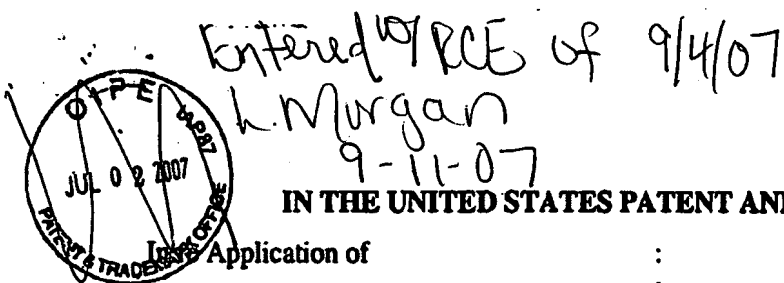 Entered w/ RCE of 9/4/07
L. Morgan
9-11-07
O I P E IAP87
JUL 0 2 2007
PATENT & TRADEMARK OFFICE
IN THE UNITED STATES PATENT AN
In re Application of :